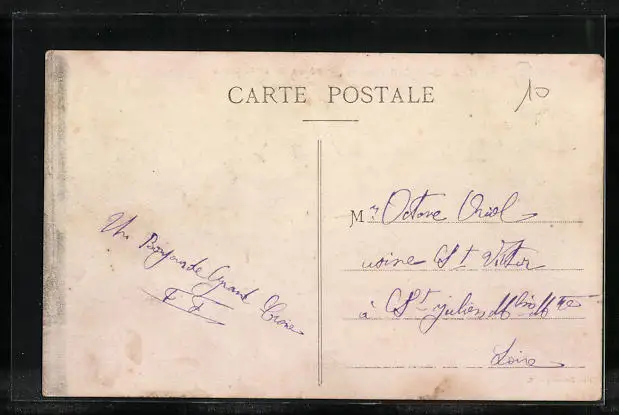 CARTE POSTALE
10
Un Bonjour de Grand Croix
F F
Mr Octave Oriol
usine St Victor
à St julien
Loire